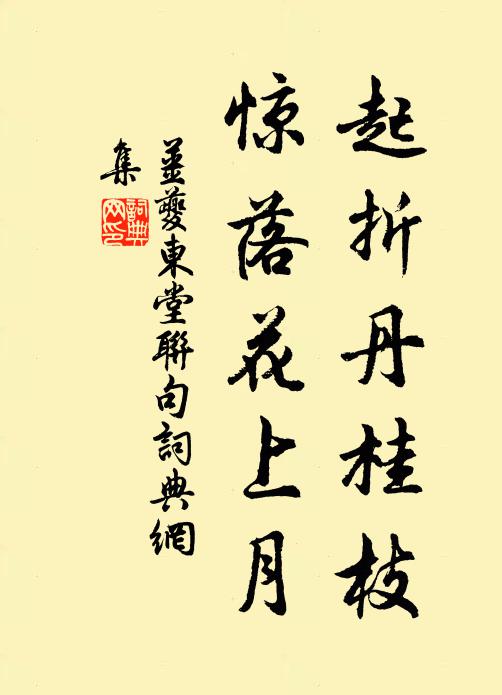 起折丹桂枝
惊落花上月
姜夔東堂聯句詞典網
集
詞典
网印